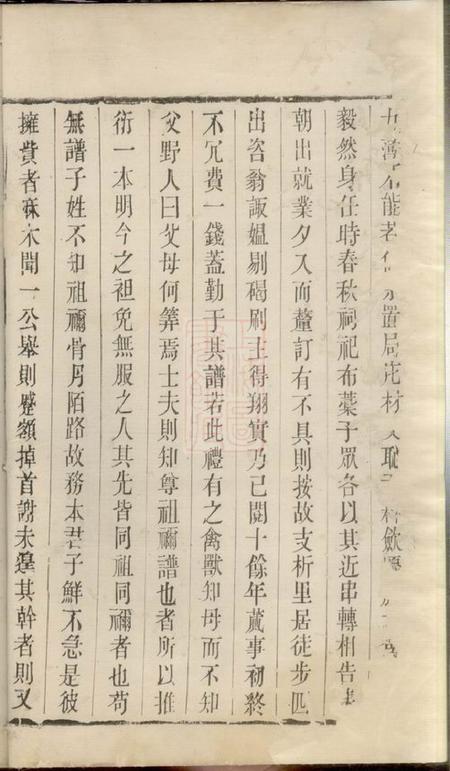 能者置局庀材
毅然身任時春秋祠祀布藁于眾各以其近串轉相告
朝出就業夕入而釐訂有不具則按故支析里居徒步匹
出咨翁諏媼剔碣刷主得翔實乃已閱十餘年蕆事初終
不冗費一錢蓋勤于其譜若此禮有之禽獸知母而不知
父野人曰父母何筭焉士夫則知尊祖禰譜也者所以推
衍一本明今之袒免無服之人其先皆同祖同禰者也苟
無譜子姓不知祖禰骨肉陌路故務本君子鮮不急是彼
擁貲者耳未聞一公舉則蹙額掉首謝未遑其幹者則又